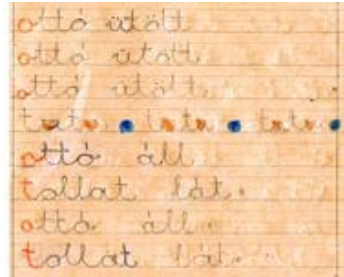 ottó ütött
ottó ütött
ottó ütött
tat tat tat
ottó áll
tollat lát.
ottó áll
tollat lát.